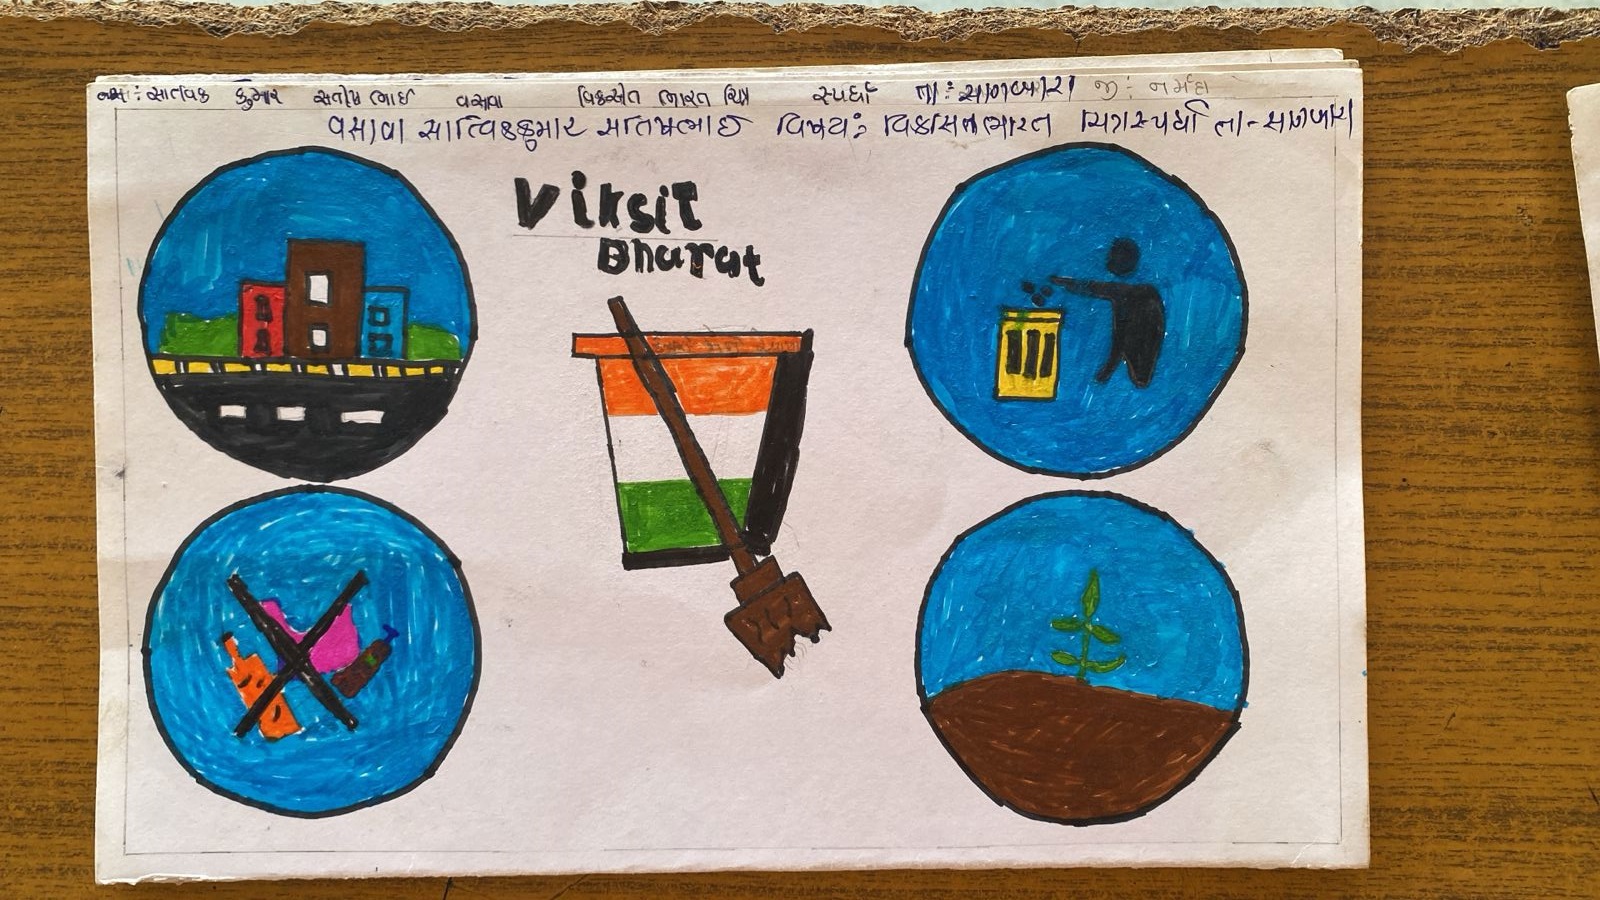 નામ : સાત્વિક કુમાર સતીષ ભાઈ વસાવા વિકસીત ભારત ચિત્ર સ્પર્ધા તા : સાગબારા જી : નર્મદા
વસાવા સાત્વિકકુમાર સતિષભાઈ વિષય : વિકસિત ભારત ચિત્રસ્પર્ધા તા - સાગબારા
Viksit
Bharat